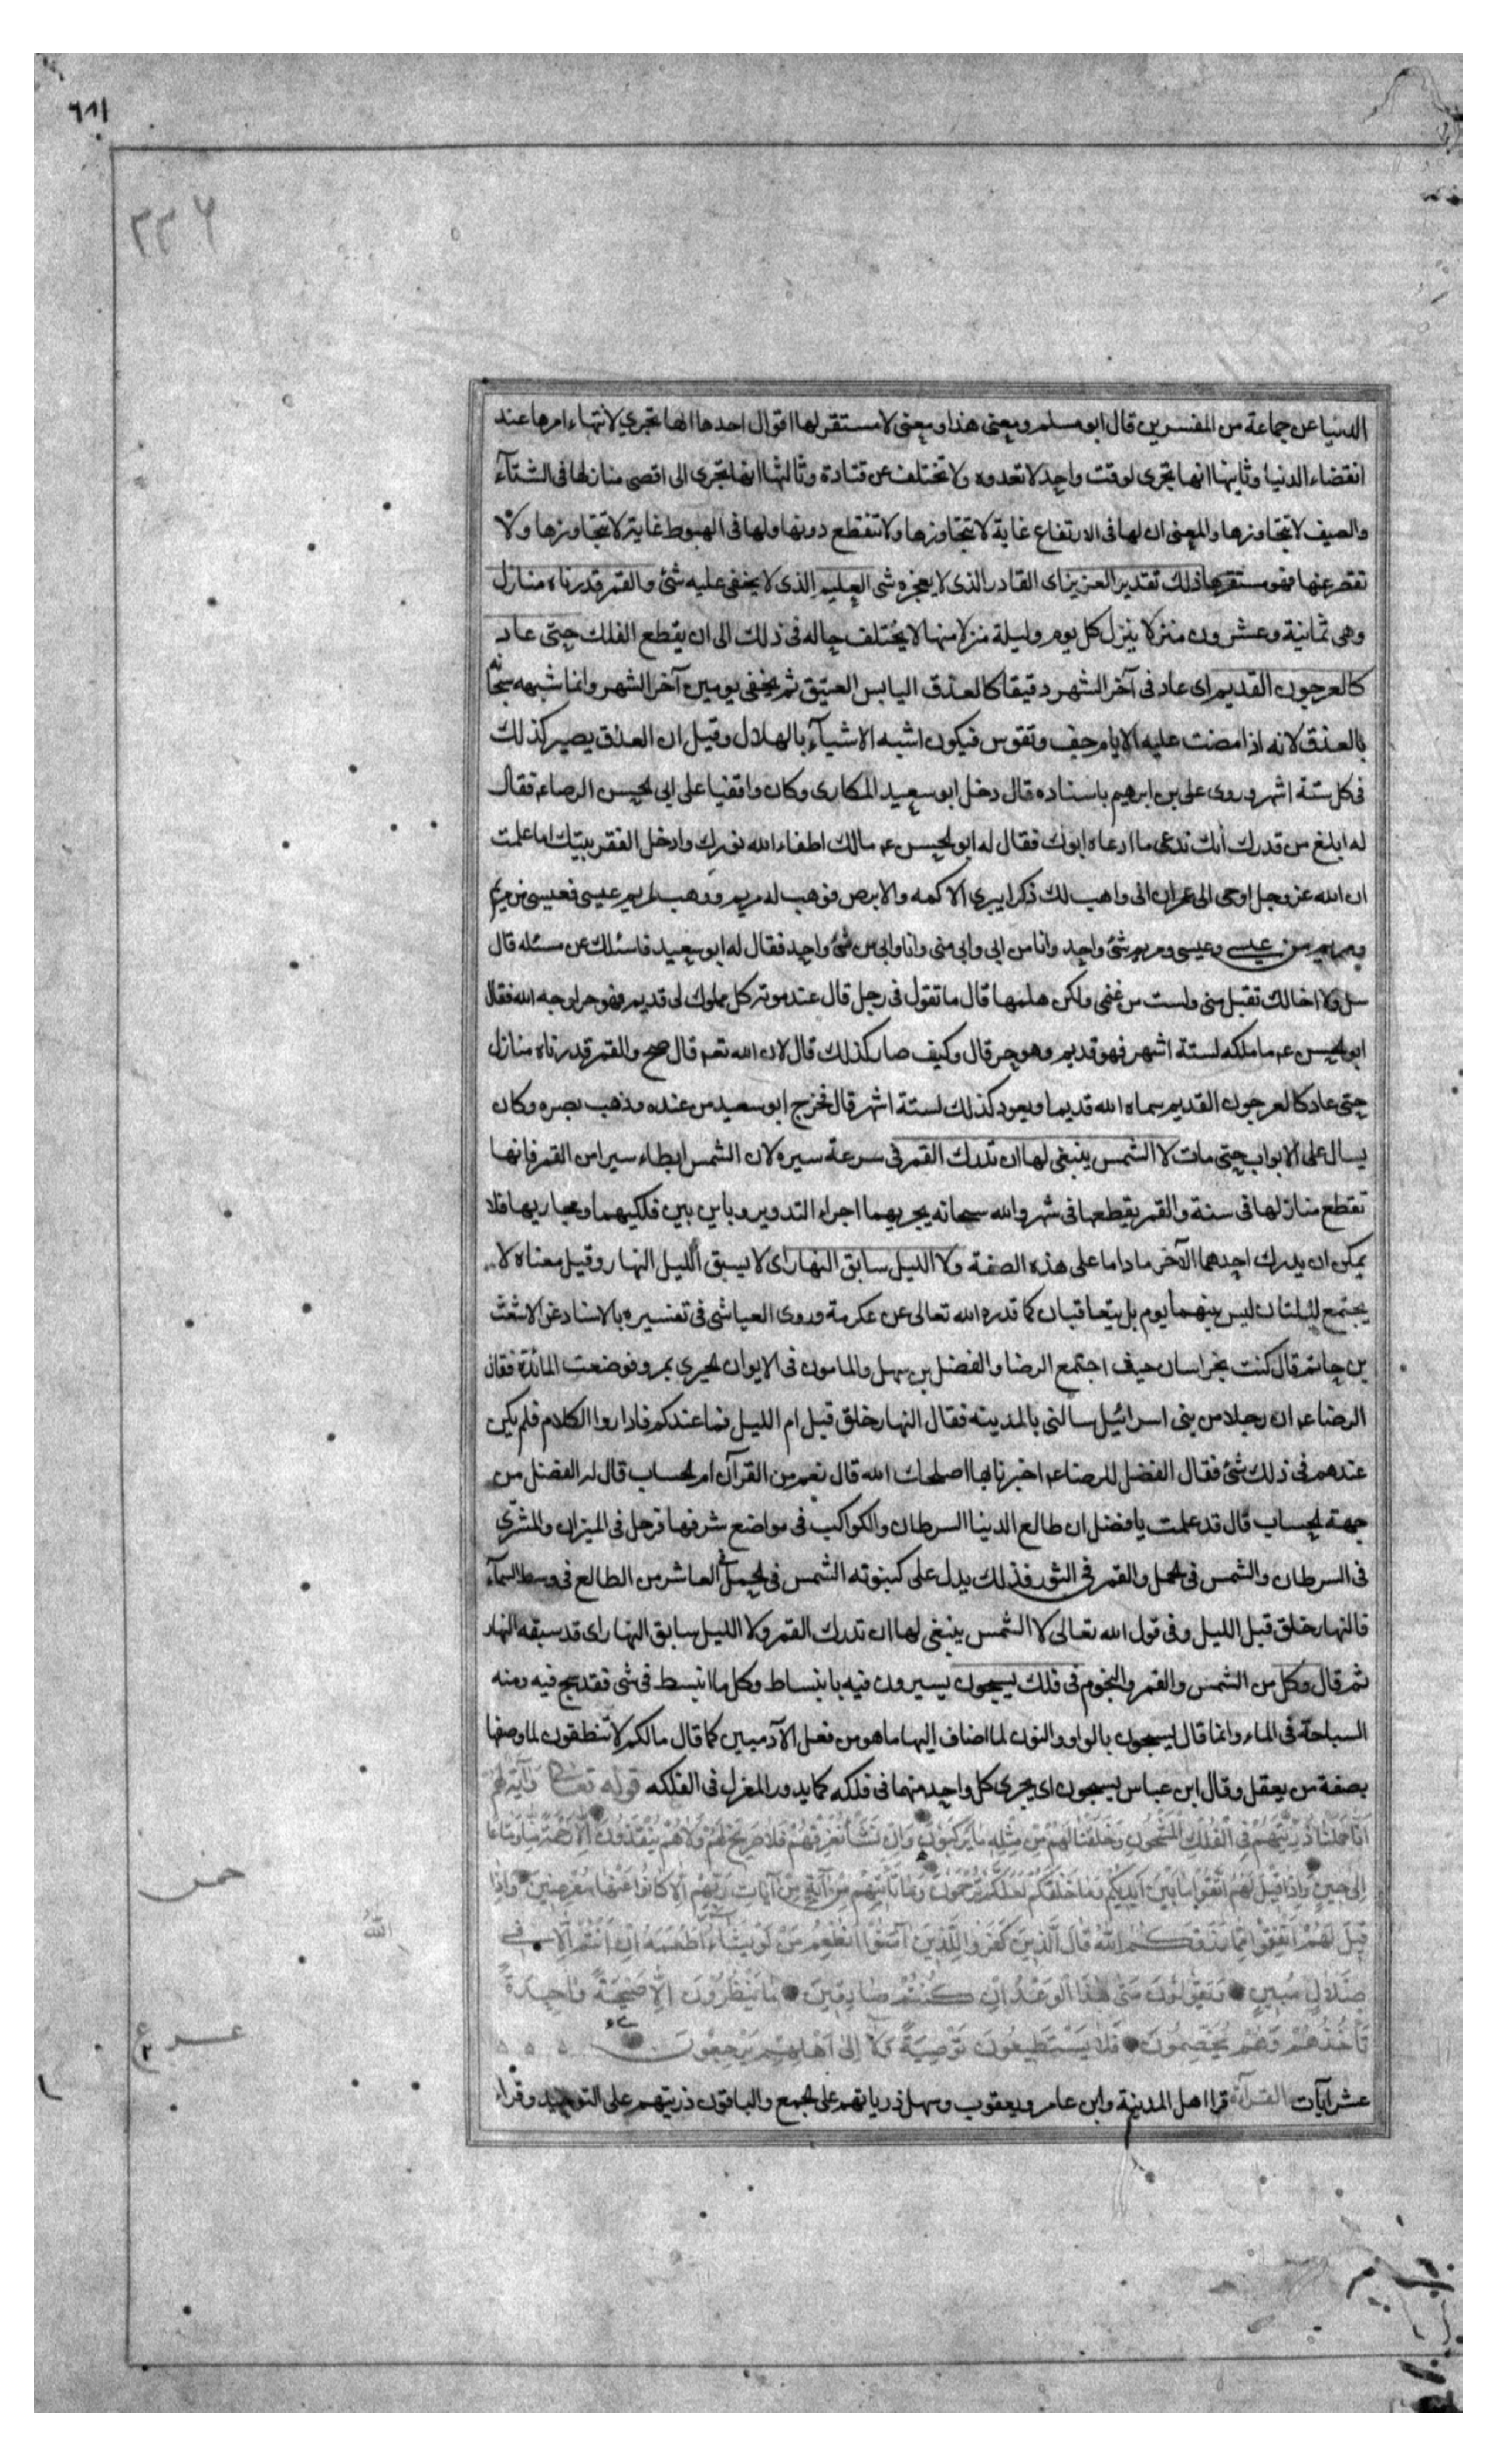 ٦٨١
٢٢٦
الدنيا عن جماعة من المفسرين قال ابو مسلم ومعنى هذا ومعنى لا مستقر لها اقوال احدها انها تجري لانتهاء امرها عند
انقضاء الدنيا وثانيها انها تجرى لوقت واحد لا تعدوه ولا تختلف عن قتادة وثالثها انها تجرى الى اقصى منازلها فى الشتآء
والصيف لا تتجاوزها والمعنى ان لها فى الارتفاع غاية لا تتجاوزها ولا تنقطع دونها ولها فى الهبوط غاية لا تتجاوزها ولا
تقصر عنها فهو مستقرها ذلك تقدير العزيز اى القادر الذى لا يعجزه شى العليم الذى لا يخفى عليه شئ والقمر قدرناه منازل
وهى ثمانية وعشرون منزلا ينزل كل يوم وليلة منزلا منها لا يختلف حاله فى ذلك الى ان يقطع الفلك حتى عاد
كالعرجون القديم اى عاد فى آخر الشهر دقيقا كالعذق اليابس العتيق ثم يخفى يومين آخر الشهر وانما شبهه سبحانه
بالعذق لانه اذا مضت عليه الايام جف وتقوس فيكون اشبه الاشيآء بالهلال وقيل ان العذق يصير كذلك
فى كل ستة اشهر وروى على بن ابرهيم باسناده قال دخل ابو سعيد المكارى وكان واقفيا على ابى الحسن الرضاء فقال
له ابلغ من قدرك انك تدعى ما ادعاه ابوك فقال له ابو الحسن ع مالك اطفاء الله نورك وادخل الفقر بيتك اما علمت
ان الله عز وجل اوحى الى عمران انى واهب لك ذكرا يبرى الاكمه والابرص فوهب له مريم ووهب لمريم عيسى فعيسى من مريم
ومريم من عيسى وعيسى ومريم شئ واحد وانا من ابى وابى منى وانا وابى من شئ واحد فقال له ابو سعيد فاسئلك عن مسئله قال
سل ولا اخالك تقبل منى ولست من غنمى ولكن هلمها قال ما تقول فى رجل قال عند موته كل مملوك لى قديم فهو حر لوجه الله فقال
ابو الحسن ع ما ملكه لستة اشهر فهو قديم وهو حر قال وكيف صار كذلك قال لان الله تعم قال والقمر قدرناه منازل
حتى عاد كالعرجون القديم سماه الله قديما ويعود كذلك لستة اشهر قال فخرج ابو سعيد من عنده وذهب بصره وكان
يسال على الابواب حتى مات لا الشمس ينبغى لها ان تدرك القمر فى سرعة سيره لان الشمس ابطاء سيرا من القمر فانها
تقطع منازلها فى سنة والقمر يقطعها فى شهر والله سبحانه يجريهما اجراء التدوير وباين بين فلكيهما ومجاريهما فلا
يمكن ان يدرك احدهما الآخر ما داما على هذه الصفة ولا الليل سابق النهار اى لا يسبق الليل النهار وقيل معناه لا
يجتمع ليلتان ليس بينهما يوم بل يتعاقبان كما قدره الله تعالى عن عكرمة وروى العياشى فى تفسيره بالاسناد عن الاشعث
بن حاتم قال كنت بخراسان حيث اجتمع الرضا والفضل بن سهل والمامون فى الايوان الحيرى بمرو فوضعت المائدة فقال
الرضا ع ان رجلا من بنى اسرائيل سالنى بالمدينه فقال النهار خلق قبل ام الليل فما عندكم فاداروا الكلام فلم يكن
عندهم فى ذلك شئ فقال الفضل للرضا ع اخبرنا بها اصلحك الله قال نعم من القرآن ام الحساب قال له الفضل من
جهة الحساب قال قد علمت يا فضل ان طالع الدنيا السرطان والكواكب فى مواضع شرفها فزحل فى الميزان والمشترى
فى السرطان والشمس فى الحمل والقمر فى الثور فذلك يدل على كينونه الشمس فى الحمل فى العاشر من الطالع فى وسط السمآء
فالنهار خلق قبل الليل وفى قول الله تعالى لا الشمس ينبغى لها ان تدرك القمر ولا الليل سابق النهار اى قد سبقه النهار
ثم قال وكل من الشمس والقمر والنجوم فى فلك يسبحون يسيرون فيه بانبساط وكل ما انبسط فى شى فقد سبح فيه ومنه
السباحة فى الماء وانما قال يسبحون بالواو والنون لما اضاف اليها ما هو من فعل الآدميين كما قال مالكم لا تنطقون لما وصفها
بصفة من يعقل وقال ابن عباس يسبحون اى يجرى كل واحد منهما فى فلكه كما يدور المغزل فى الفلكه قوله تعالى وَآيَةٌ لَهُمْ
اَنَّا حَمَلْنَا ذُرِّيَّتَهُمْ فِي الْفُلْكِ الْمَشْحُونِ وَخَلَقْنَا لَهُمْ مِنْ مِثْلِهِ مَا يَرْكَبُونَ وَاِنْ نَشَأْ نُغْرِقْهُمْ فَلَا صَرِيخَ لَهُمْ وَلَا هُمْ يُنْقَذُونَ اِلَّا رَحْمَةً مِنَّا وَمَتَاعًا
اِلَى حِينٍ وَاِذَا قِيلَ لَهُمُ اتَّقُوا مَا بَيْنَ اَيْدِيكُمْ وَمَا خَلْفَكُمْ لَعَلَّكُمْ تُرْحَمُونَ وَمَا تَأْتِيهِمْ مِنْ آيَةٍ مِنْ آيَاتِ رَبِّهِمْ اِلَّا كَانُوا عَنْهَا مُعْرِضِينَ وَاِذَا
قِيلَ لَهُمْ اَنْفِقُوا مِمَّا رَزَقَكُمُ اللهُ قَالَ الَّذِينَ كَفَرُوا لِلَّذِينَ آمَنُوا اَنُطْعِمُ مَنْ لَوْ يَشَاءُ اللهُ اَطْعَمَهُ اِنْ اَنْتُمْ اِلَّا فِي
ضَلَالٍ مُبِينٍ وَيَقُولُونَ مَتَى هَذَا الْوَعْدُ اِنْ كُنْتُمْ صَادِقِينَ مَا يَنْظُرُونَ اِلَّا صَيْحَةً وَاحِدَةً
تَأْخُذُهُمْ وَهُمْ يَخِصِّمُونَ فَلَا يَسْتَطِيعُونَ تَوْصِيَةً وَلَا اِلَى اَهْلِهِمْ يَرْجِعُونَ
عشر آيات القرآءة قرا اهل المدينة وابن عامر ويعقوب وسهل ذرياتهم على الجمع والباقون ذريتهم على التوحيد وقراء
خمس
الله
عشر